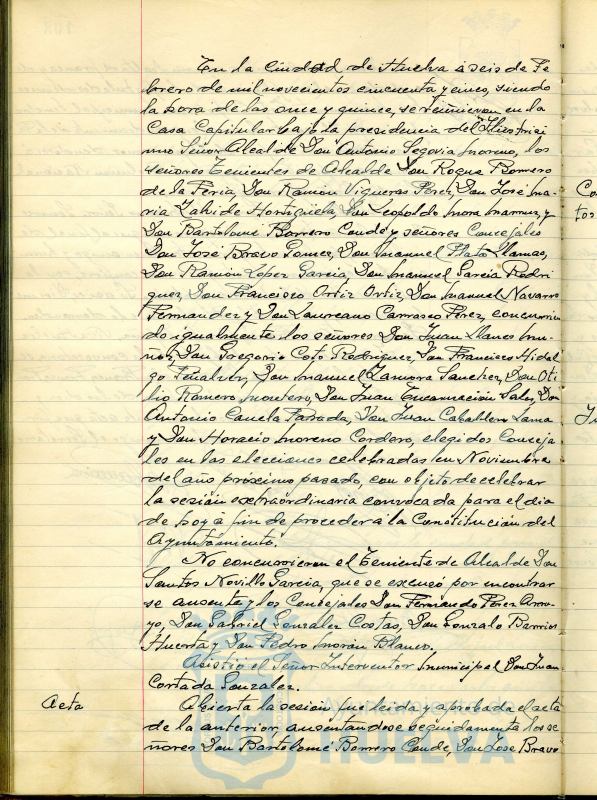 En la ciudad de Huelva a seis de Fe
brero de mil novecientos cincuenta y cinco, siendo
la hora de las once y quince, se reunieron en la
Casa Capitular bajo la presidencia del Ilustrísi
mo Señor Alcalde Don Antonio Segovia Moreno, los
señores Tenientes de Alcalde Don Roque Romero
de la Feria, Don Ramón Vigueras Pérez, Don José Ma
ría Zalvide Hortigüela, Don Leopoldo Mora y
Don Bartolomé Borrero Conde y señores Concejales
Don José Bravo Gomez, Don Manuel Plata Llamas,
Don Ramón Lopez García, Don Manuel García Rodri
guez, Don Francisco Ortiz Ortiz, Don Manuel Navarro
Fernandez y Don Laureano Carrasco Pérez, concurrien
do igualmente los señores Don Juan Llanes Mu
ñoz, Don Gregorio Coto Rodriguez, Don Francisco Hidal
go Peñalver, Don Manuel Zamora Sanchez, Don Oti
lio Romero Montero, Don Juan Encarnación Don
Antonio Canela Parrada, Don Juan Caballero Lama
y Don Horacio Moreno Cordero, elegidos Conceja
les en las elecciones celebradas en Noviembre
del año próximo pasado, con objeto de celebrar
la sesión extraordinaria convocada para el dia
de hoy a fin de proceder a la Constitución del
Ayuntamiento.
No concurrieron el Teniente de Alcalde Don
Santos Novillo García, que se excusó por encontrar
se ausente y los Concejales Don Fernando Pérez Arro
yo, Don Gabriel Gonzalez Costas, Don Gonzalo Barrios
Huerta y Don Pedro Morán Blanco.
Asistió el Señor Interventor Municipal Don Juan
Cortada Gonzalez.
Acta
Abierta la sesión fue leida y aprobada el acta
de la anterior, ausentandose seguidamente los se
ñores Don Bartolomé Borrero Conde, Don Jose Bravo
Co
tos
HUELVA